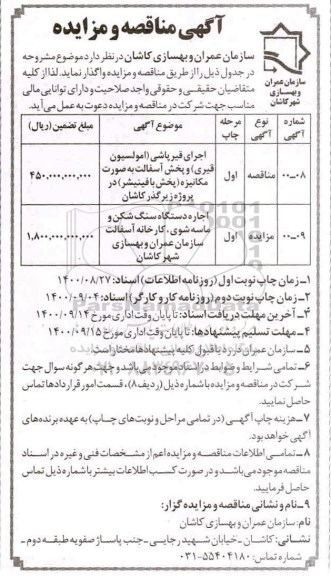 آگهی مناقصه و مزایده
سازمان عمران
و بهسازی
شهر کاشان
سازمان عمران و بهسازی کاشان در نظر دارد موضوع مشروحه
در جدول ذیل را از طریق مناقصه و مزایده واگذار نماید. لذا از کلیه
متقاضیان حقیقی و حقوقی واجد صلاحیت و دارای توانایی مالی
مناسب جهت شرکت در مناقصه و مزایده دعوت به عمل می‌آید.
شماره آگهی نوع آگهی مرحله چاپ موضوع آگهی مبلغ تضمین (ریال)
۰۸-۰۰ مناقصه اول اجرای قیرپاشی (امولسیون
قیری) و پخش آسفالت به صورت
مکانیزه (پخش با فینیشر) در
پروژه زیرگذر کاشان
۴۵۰,۰۰۰,۰۰۰,۰۰۰
۰۹-۰۰ مزایده اول اجاره دستگاه سنگ شکن و
ماسه شوی، کارخانه آسفالت
سازمان عمران و بهسازی
شهر کاشان
۱,۸۰۰,۰۰۰,۰۰۰,۰۰۰
۱- زمان چاپ نوبت اول (روزنامه اطلاعات) اسناد: ۱۴۰۰/۰۸/۲۷
۲- زمان چاپ نوبت دوم (روزنامه کار و کارگر) اسناد: ۱۴۰۰/۰۹/۰۴
۳- آخرین مهلت دریافت اسناد: تا پایان وقت اداری مورخ ۱۴۰۰/۰۹/۱۴
۴- مهلت تسلیم پیشنهادها: تا پایان وقت اداری مورخ ۱۴۰۰/۰۹/۱۵
۵- سازمان عمران در رد یا قبول کلیه پیشنهادها مختار است.
۶- تمامی شرایط و ضوابط در اسناد موجود می‌باشد و جهت هر گونه سوال جهت
شرکت در مناقصه و مزایده با شماره ذیل (ردیف ۸)، قسمت امور قراردادها تماس
حاصل نمایید.
۷- هزینه چاپ آگهی (در تمامی مراحل و نوبت‌های چاپ) به عهده برنده‌های
آگهی خواهد بود.
۸- تمامی اطلاعات مناقصه و مزایده اعم از مشخصات فنی و غیره در اسناد
مناقصه موجود می‌باشد و در صورت کسب اطلاعات بیشتر با شماره ذیل تماس
حاصل فرمایید.
۹- نام و نشانی مناقصه و مزایده گزار:
نام: سازمان عمران و بهسازی کاشان
نشانی: کاشان - خیابان شهید رجایی - جنب پاساژ صفویه طبقه دوم -
شماره تماس: ۵۵۴۰۴۱۸۰-۰۳۱